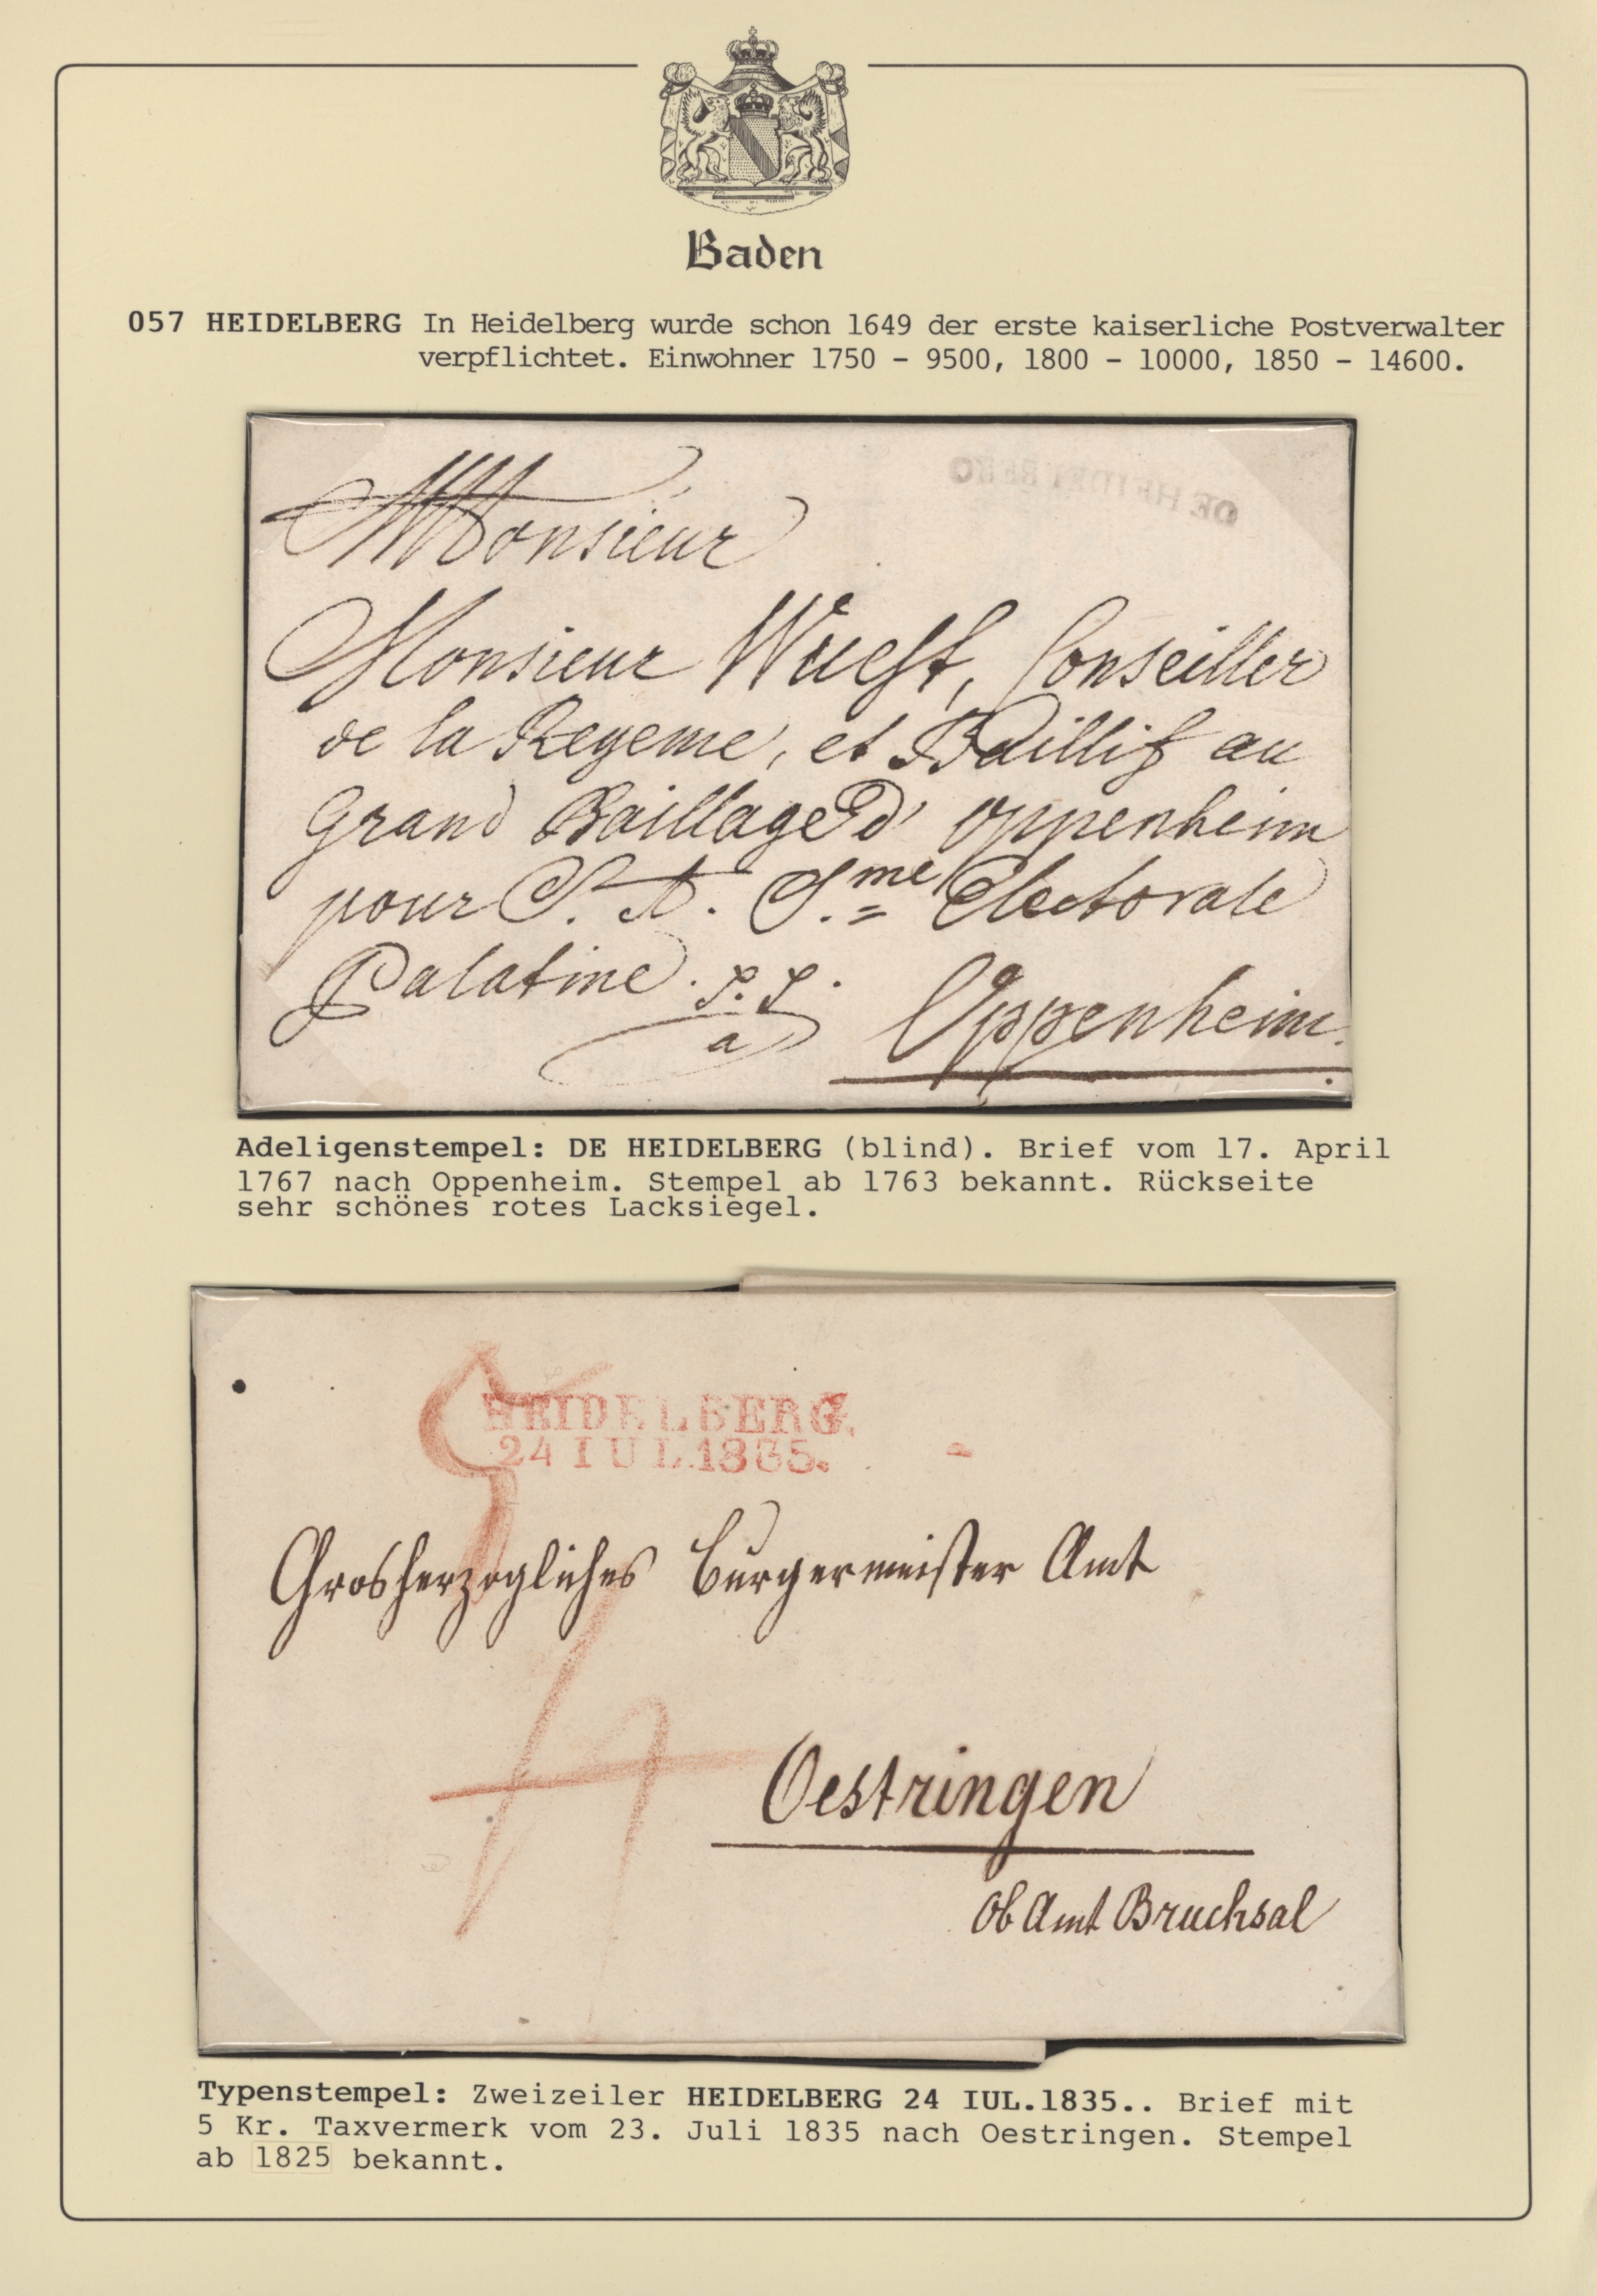 Baden
057 HEIDELBERG In Heidelberg wurde schon 1649 der erste kaiserliche Postverwalter
verpflichtet. Einwohner 1750 - 9500, 1800 - 10000, 1850 - 14600.
DE HEIDELBERG
Monsieur
Monsieur Wuest, Conseiller
de la Regence, et Baillif au
Grand Baillage d' Oppenheim
pour S. A. S.me Electorale
Palatine. p. p.
a
Oppenheim.
Adeligenstempel: DE HEIDELBERG (blind). Brief vom 17. April
1767 nach Oppenheim. Stempel ab 1763 bekannt. Rückseite
sehr schönes rotes Lacksiegel.
HEIDELBERG.
24 IUL.1835.
Grosherzogliches Burgermeister Amt
Oestringen
Ob Amt Bruchsal
Typenstempel: Zweizeiler HEIDELBERG 24 IUL.1835.. Brief mit
5 Kr. Taxvermerk vom 23. Juli 1835 nach Oestringen. Stempel
ab 1825 bekannt.